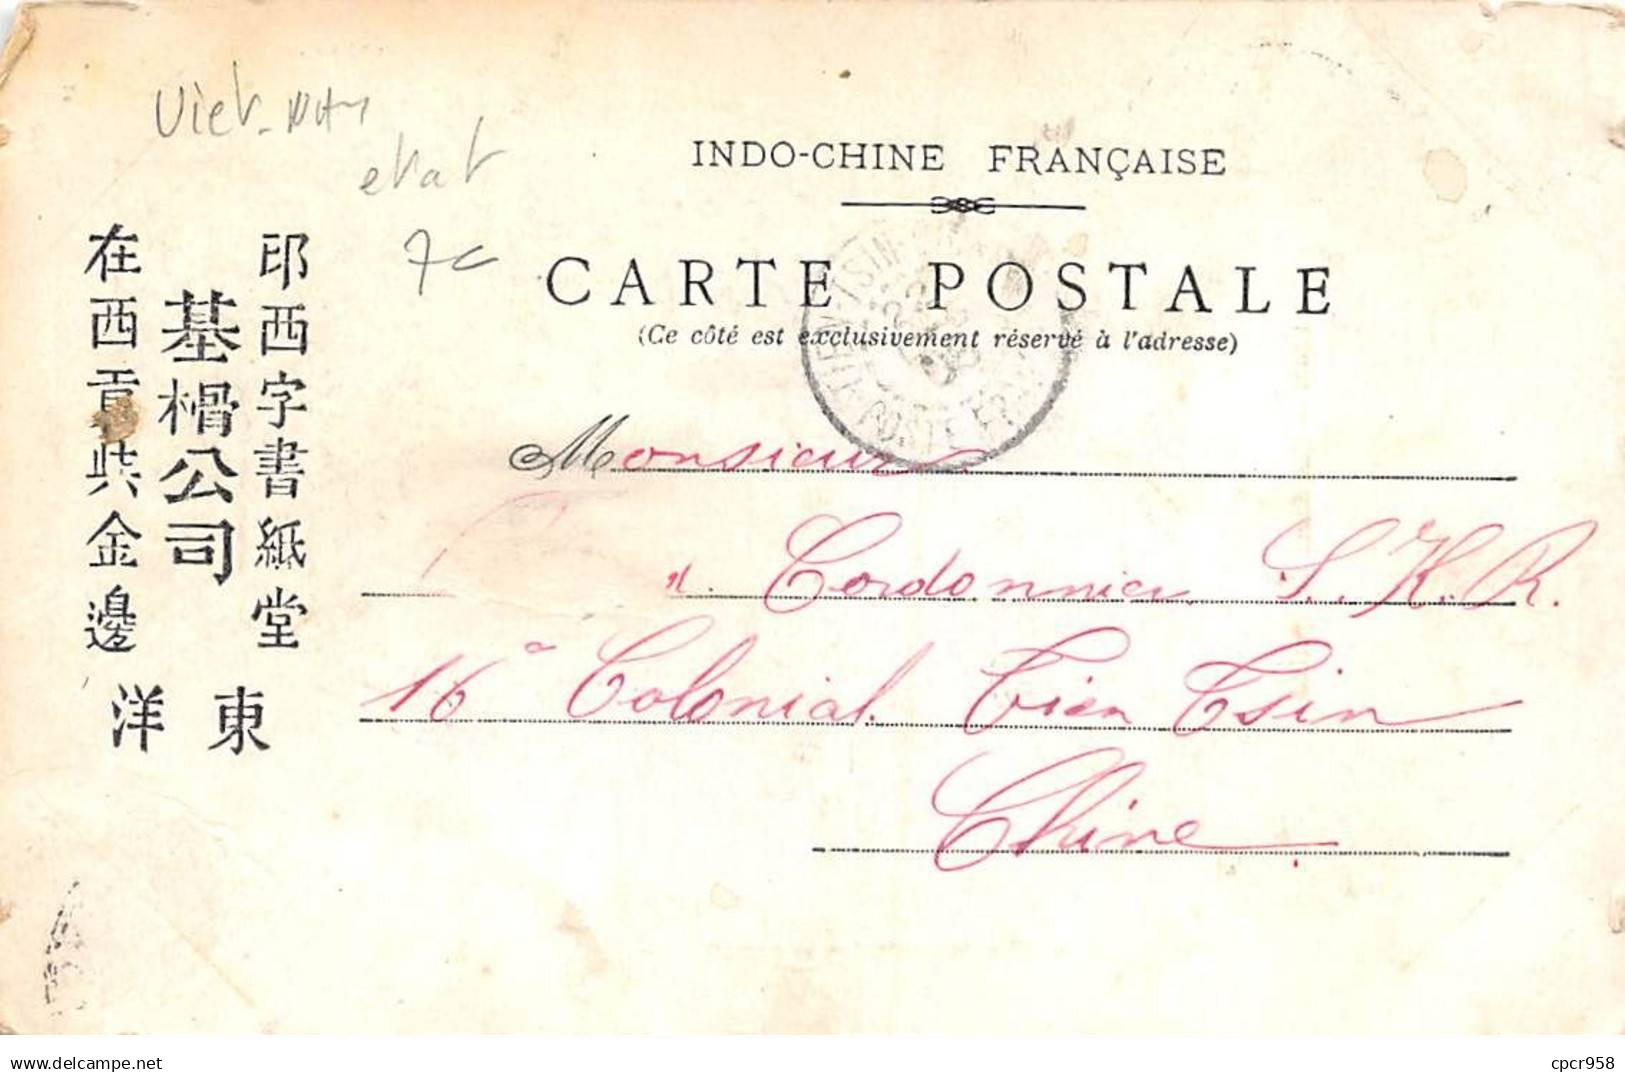 Viet-Nam
etat
7c
INDO-CHINE FRANÇAISE
CARTE POSTALE
(Ce côté est exclusivement réservé à l'adresse)
TIEN-TSIN
POSTE FR
印西字書紙堂
基榾公司
在西貢共金邊
東洋
Monsieur
Cordonnier S. H. R.
16e Colonial Tien Tsin
Chine
delcampe.net
cpcr958